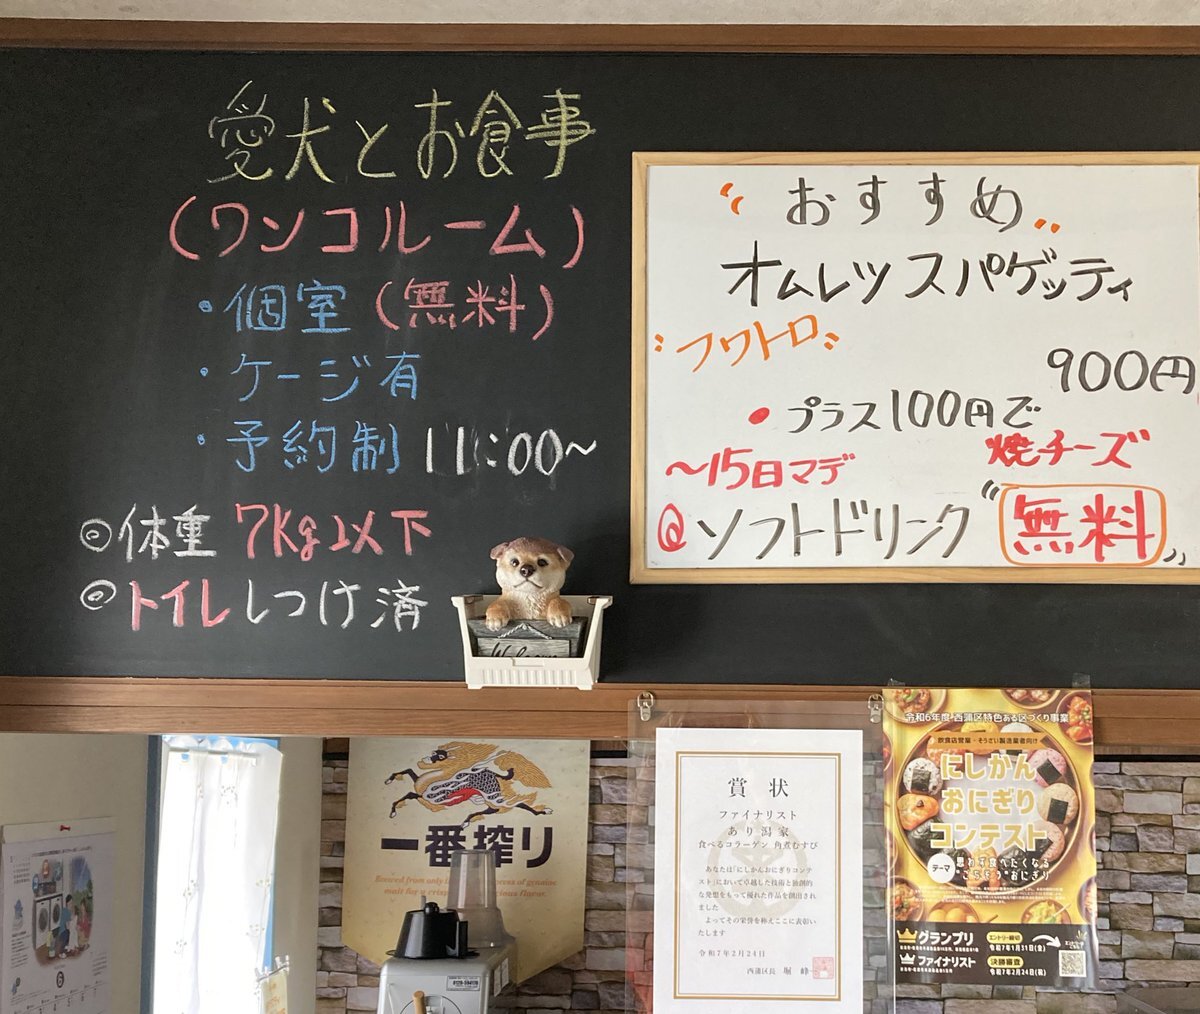 愛犬とお食事
(ワンコルーム)
・個室(無料)
・ケージ有
・予約制 11:00~
◎体重 7Kg以下
◎トイレしつけ済
Welcome
おすすめ
オムレツスパゲッティ
フワトロ
900円
・プラス100円で
焼チーズ
~15日マデ
@ソフトドリンク
無料
一番搾り
賞状
ファイナリスト
あり潟家
食べるコラーゲン 角煮むすび
あなたは「にしかんおにぎりコンテ
スト」において卓越した技術と独創的
な発想をもって優れた作品を創出され
ました
よってその栄誉を称えここに表彰い
たします
令和7年2月24日
西蒲区長 堀 峰一
令和6年度 西蒲区特色ある区づくり事業
飲食店営業・そうざい製造業者向け
にしかん
おにぎり
コンテスト
テーマ
思わず食べたくなる
"ごちそう"おにぎり
グランプリ
ファイナリスト
エントリー締切
令和7年1月31日(金)
決勝審査
令和7年2月24日(祝)